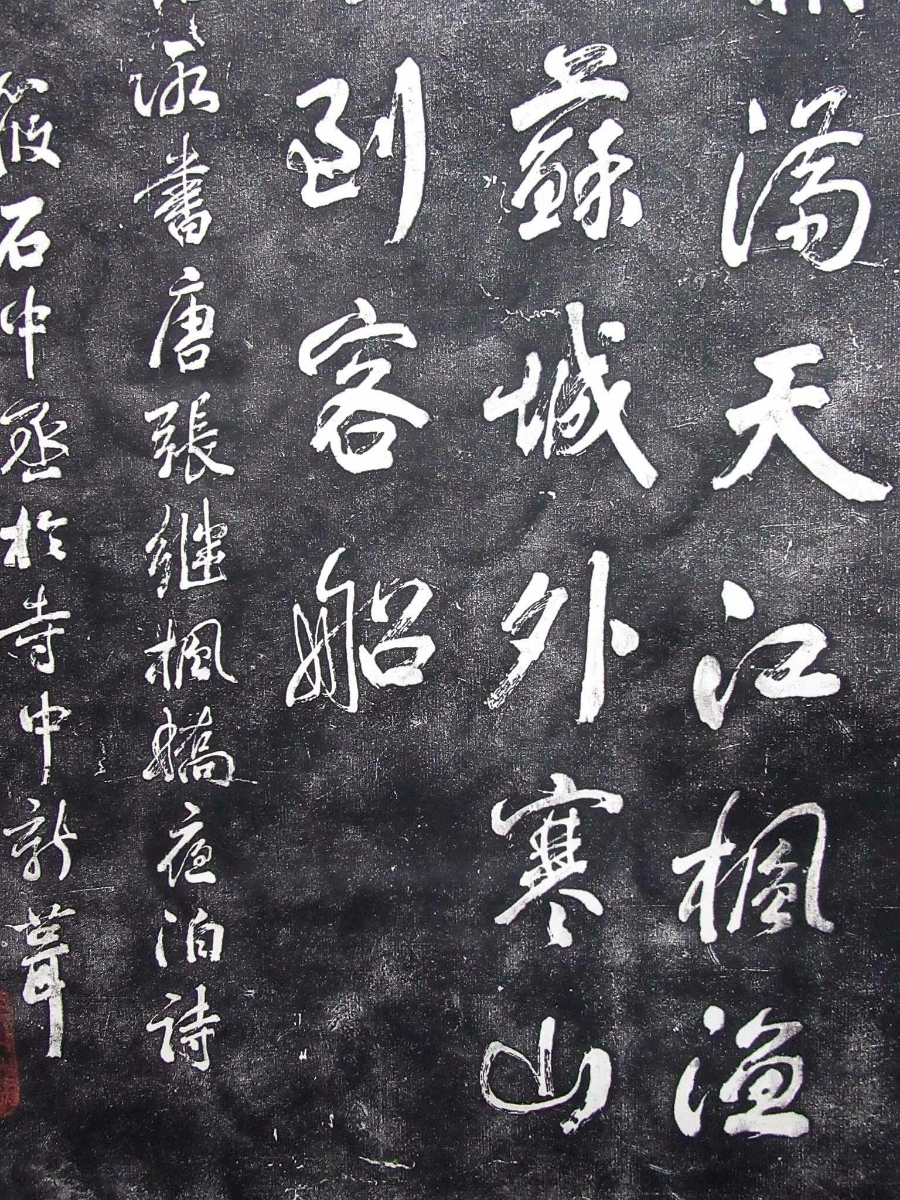 滿天江楓漁
蘇城外寒山
到客船
泳書唐張繼楓橋夜泊詩
筱石中丞於寺中新葺